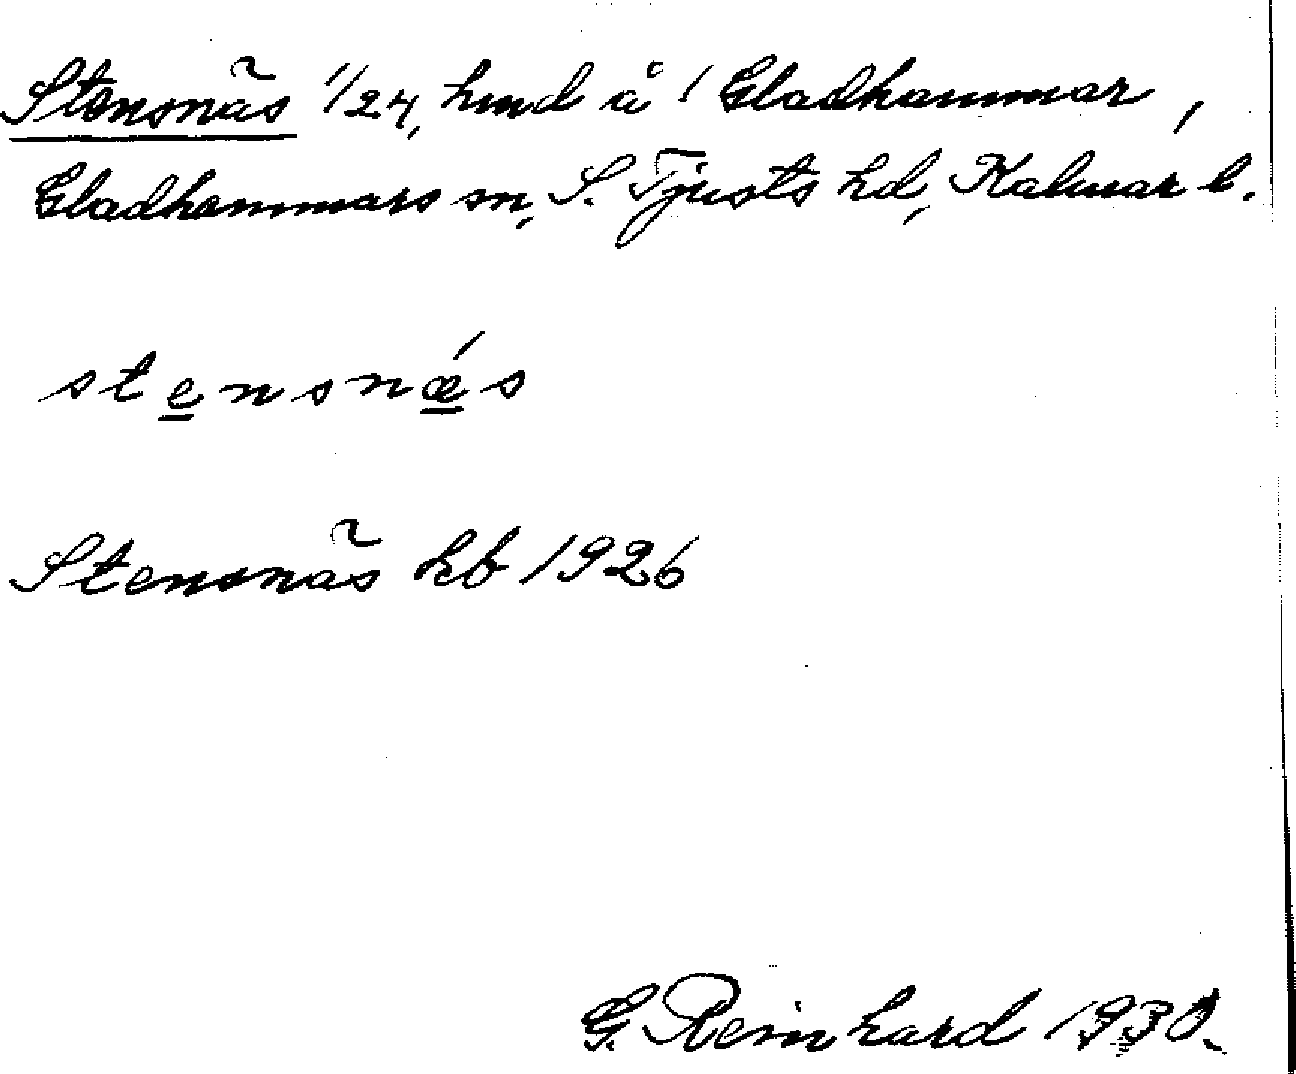 Stensnäs 1/24, hmd å 1 Gladhammar,
Gladhammars sn, S. Tjusts hd, Kalmar l.
stensnǽs
Stensnäs kb 1926
G. Reinhard 1930.